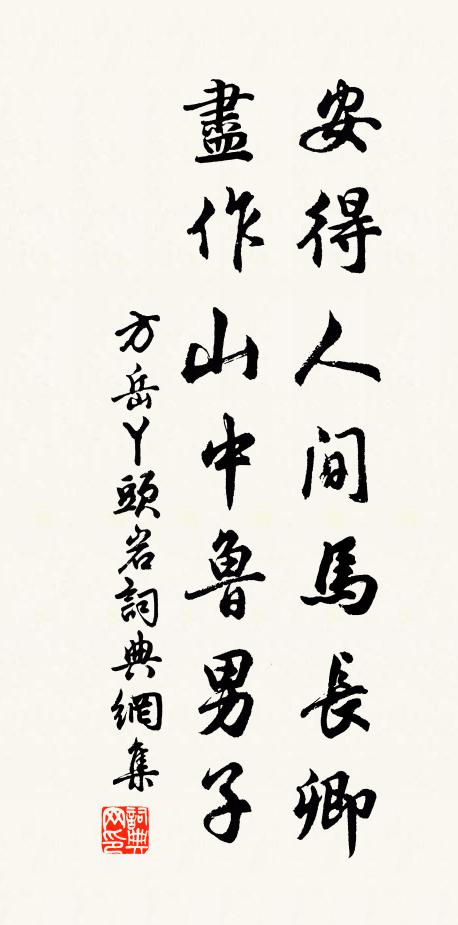 安得人間馬長卿
盡作山中魯男子
方岳丫頭岩詞典網集
詞典網印